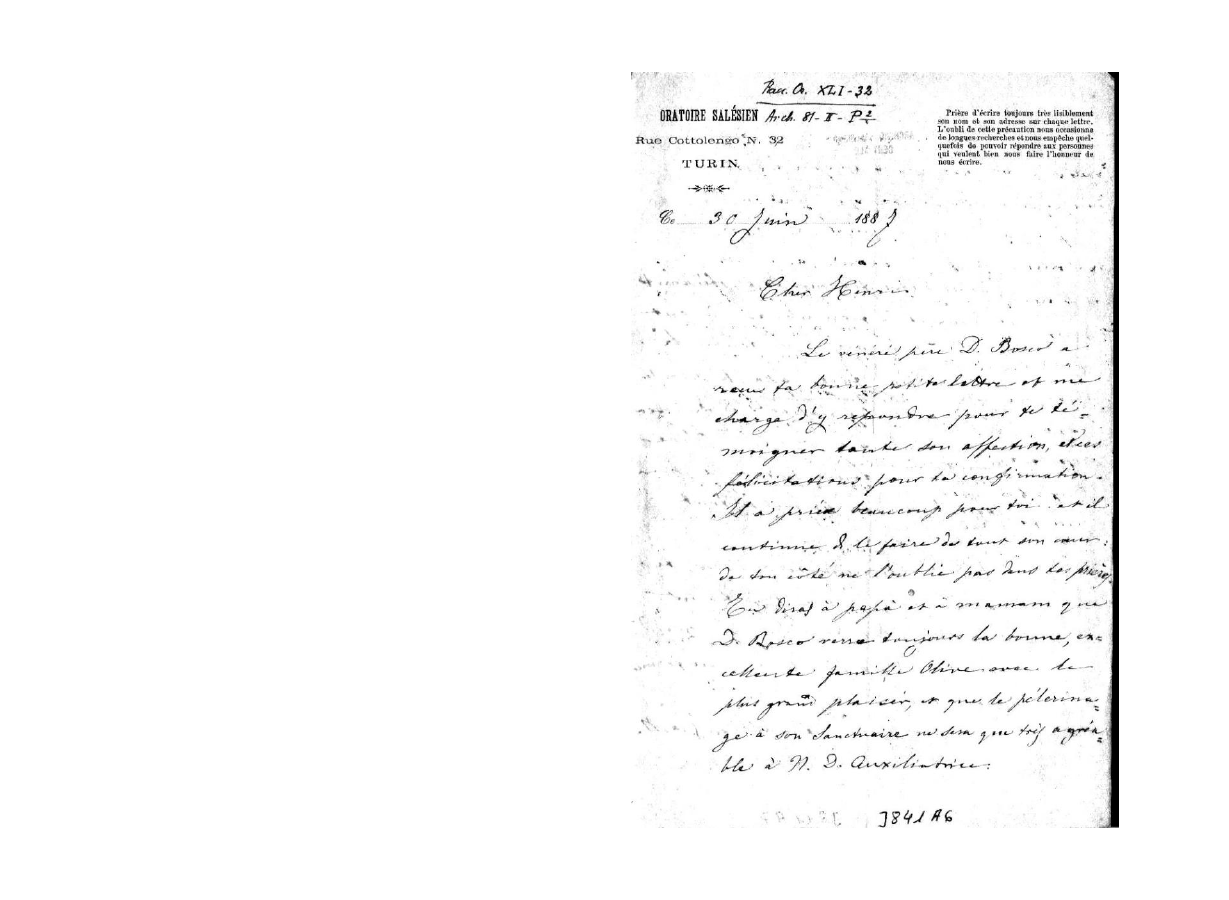 Rau. Or. XLI-32
ORATOIRE SALÉSIEN Arch. 81-II-P²
Rue Cottolengo N. 32
TURIN
Prière d'écrire toujours très lisiblement
son nom et son adresse sur chaque lettre.
L'oubli de cette précaution nous occasionne
de longues recherches et nous empêche quel-
quefois de pouvoir répondre aux personnes
qui veulent bien nous faire l'honneur de
nous écrire.
Ce 30 Juin 1887
Cher Henri
Le vénéré père D. Bosco a
reçu ta bonne petite lettre et me
charge d'y repondre pour te té=
moigner toute son affection, et ses
félicitations pour ta confirmation.
Il a prié beaucoup pour toi et il
continue à le faire de tout son cœur;
de ton côté ne l'oublie pas dans tes prières.
Tu diras à papà et à mamam que
D. Bosco verra toujours la bonne, ex=
cellente famille Olive avec le
plus grand plaisir, et que le pélerina=
ge à son Sanctuaire ne sera que très agréa=
ble à N. D. Auxiliatrice.
3841 A6